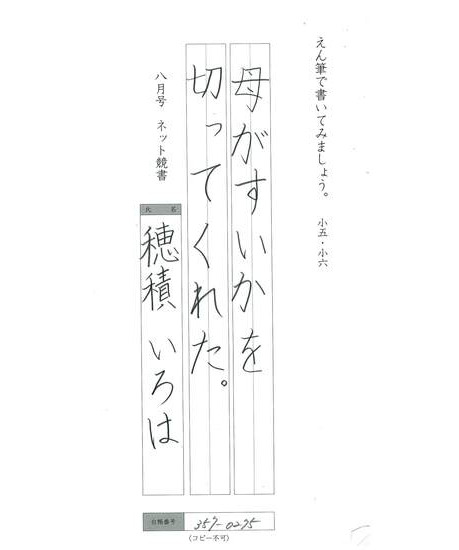 えん筆で書いてみましょう。 小五・小六
母がすいかを
切ってくれた。
八月号 ネット競書
氏 名
穂積 いろは
会員番号 359-0295
(コピー不可)